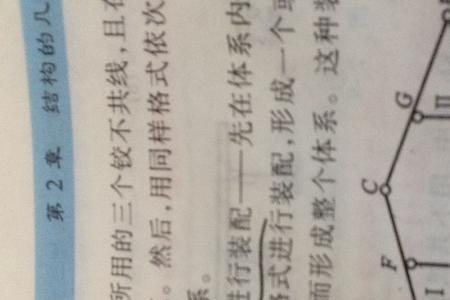 第2章 结构的几
所用的三个铰不共线,且在
。然后,用同样格式依次
系。
进行装配——先在体系内
格式进行装配,形成一个或
而形成整个体系。这种装
G
II
C
F
I